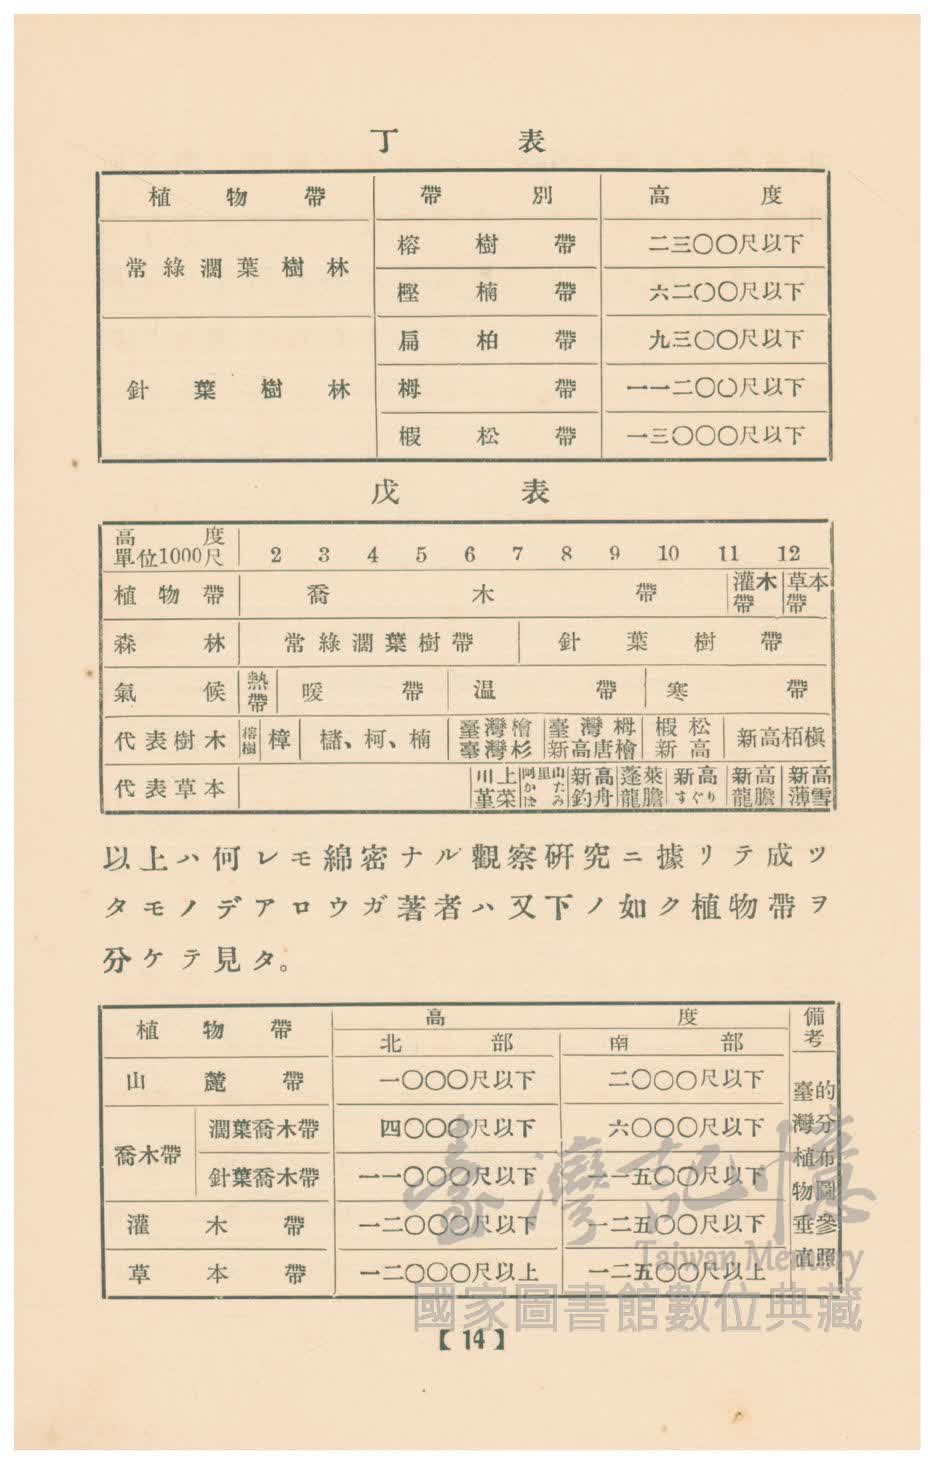 丁表
植物帶 帶別 高度
常綠濶葉樹林 榕樹帶 二三〇〇尺以下
樫楠帶 六二〇〇尺以下
針葉樹林 扁柏帶 九三〇〇尺以下
栂帶 一一二〇〇尺以下
椵松帶 一三〇〇〇尺以下
戊表
高度
單位1000尺 2 3 4 5 6 7 8 9 10 11 12
植物帶 喬木帶 灌木帶 草本帶
森林 常綠濶葉樹帶 針葉樹帶
氣候 熱帶 暖帶 温帶 寒帶
代表樹木 榕樹 樟 櫧、柯、楠 臺灣檜 臺灣杉 臺灣栂 新高唐檜 椵松 新高 新高栢槇
代表草本 川上菫菜 阿里山かたはみ 新高釣舟 蓬萊龍膽 新高すぐり 新高龍膽 新高薄雪
以上ハ何レモ綿密ナル觀察硏究ニ據リテ成ツ
タモノデアロウガ著者ハ又下ノ如ク植物帶ヲ
分ケテ見タ。
植物帶 高度 備考
北部 南部
山麓帶 一〇〇〇尺以下 二〇〇〇尺以下
喬木帶 濶葉喬木帶 四〇〇〇尺以下 六〇〇〇尺以下
針葉喬木帶 一一〇〇〇尺以下 一一五〇〇尺以下
灌木帶 一二〇〇〇尺以下 一二五〇〇尺以下
草本帶 一二〇〇〇尺以上 一二五〇〇尺以上
臺灣植物垂直
的分布圖參照
臺灣記憶
Taiwan Memory
國家圖書館數位典藏
【14】